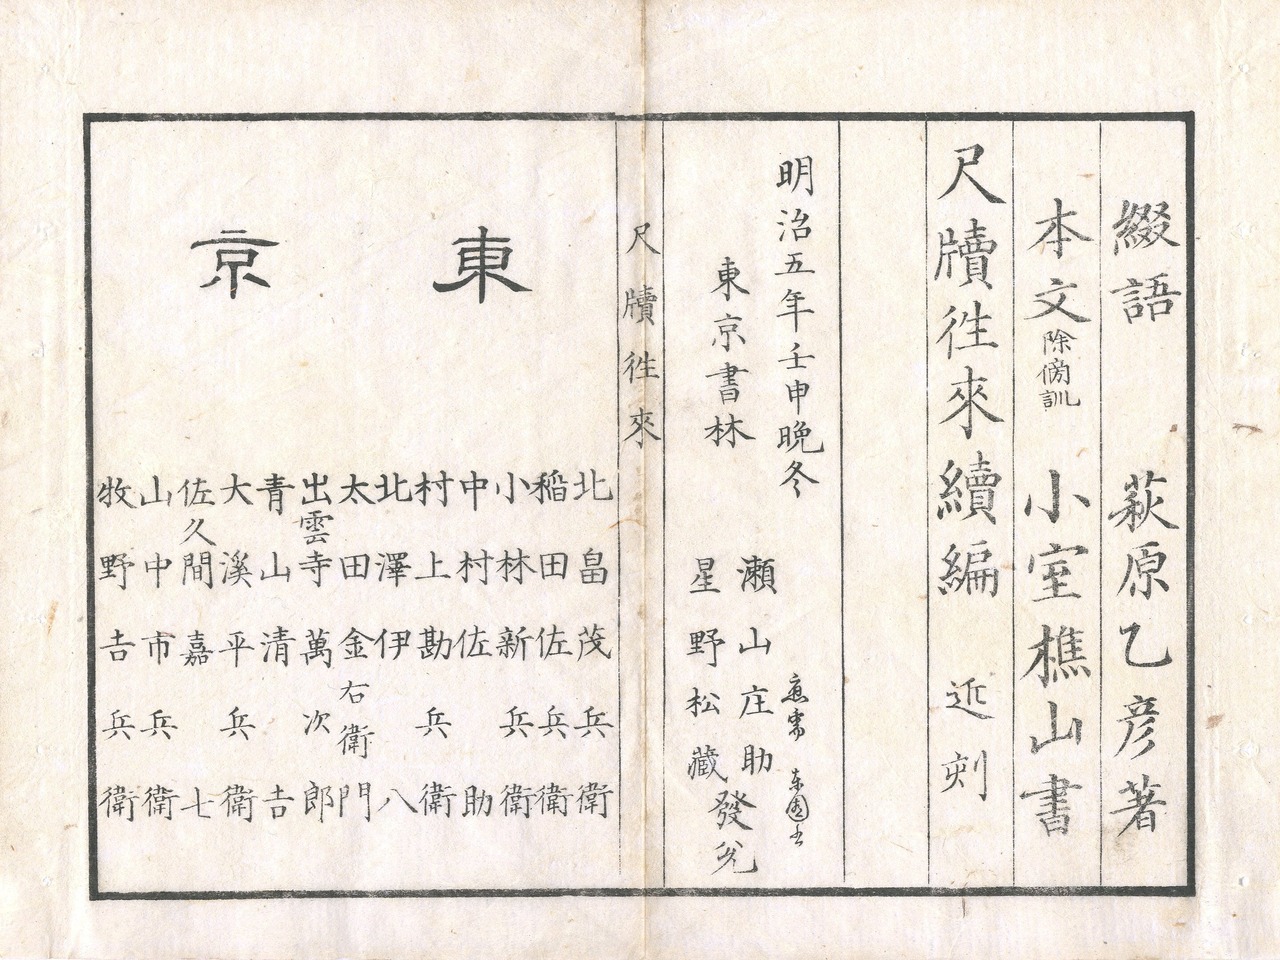 綴語 萩原乙彦著
本文除傍訓 小室樵山書
尺牘徃來續編 近刻
明治五年壬申晩冬
東京書林
瀬山庄助
星野松藏
發兌
尺牘徃來
東京
北畠茂兵衛
稲田佐兵衛
小林新兵衛
中村佐助
村上勘兵衛
北澤伊八
太田金右衛門
出雲寺萬次郎
青山清吉
大溪平兵衛
佐久間嘉七
山中市兵衛
牧野吉兵衛